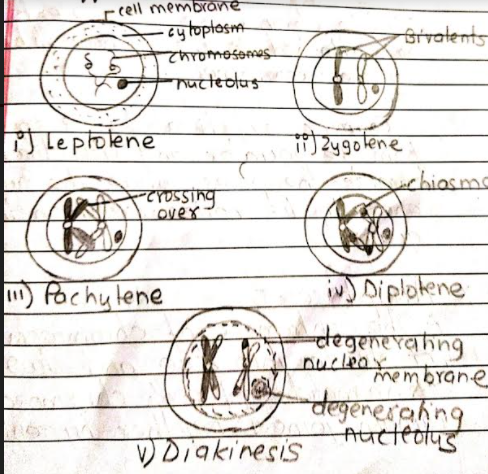 cell membrane
cytoplasm
chromosomes
nucleolus
i) Leptotene
Bivalents
ii) Zygotene
crossing
over
iii) Pachytene
chiasma
iv) Diplotene
degenerating
nuclear
membrane
degenerating
nucleolus
v) Diakinesis